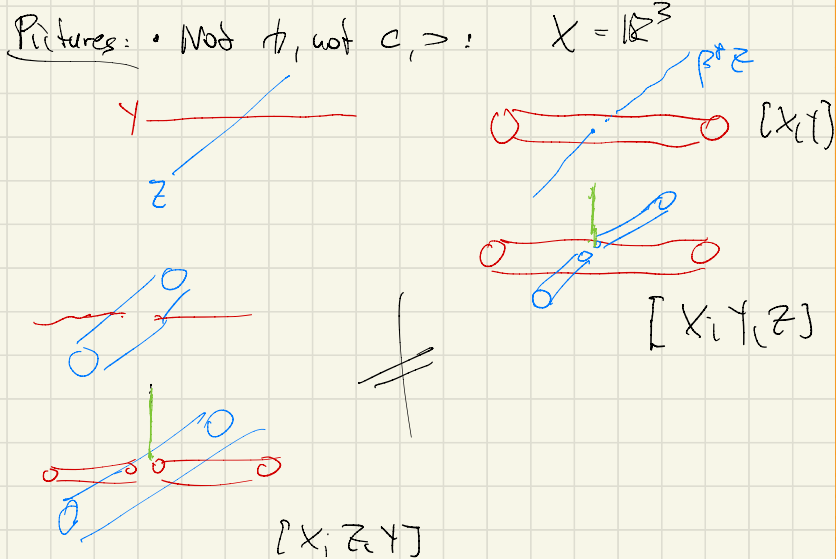 Pictures: • Not ⋔, not ⊂, ⊃: X = ℝ³
Y
Z
β*Z
[X;Y]
[X;Y,Z]
≠
[X;Z,Y]